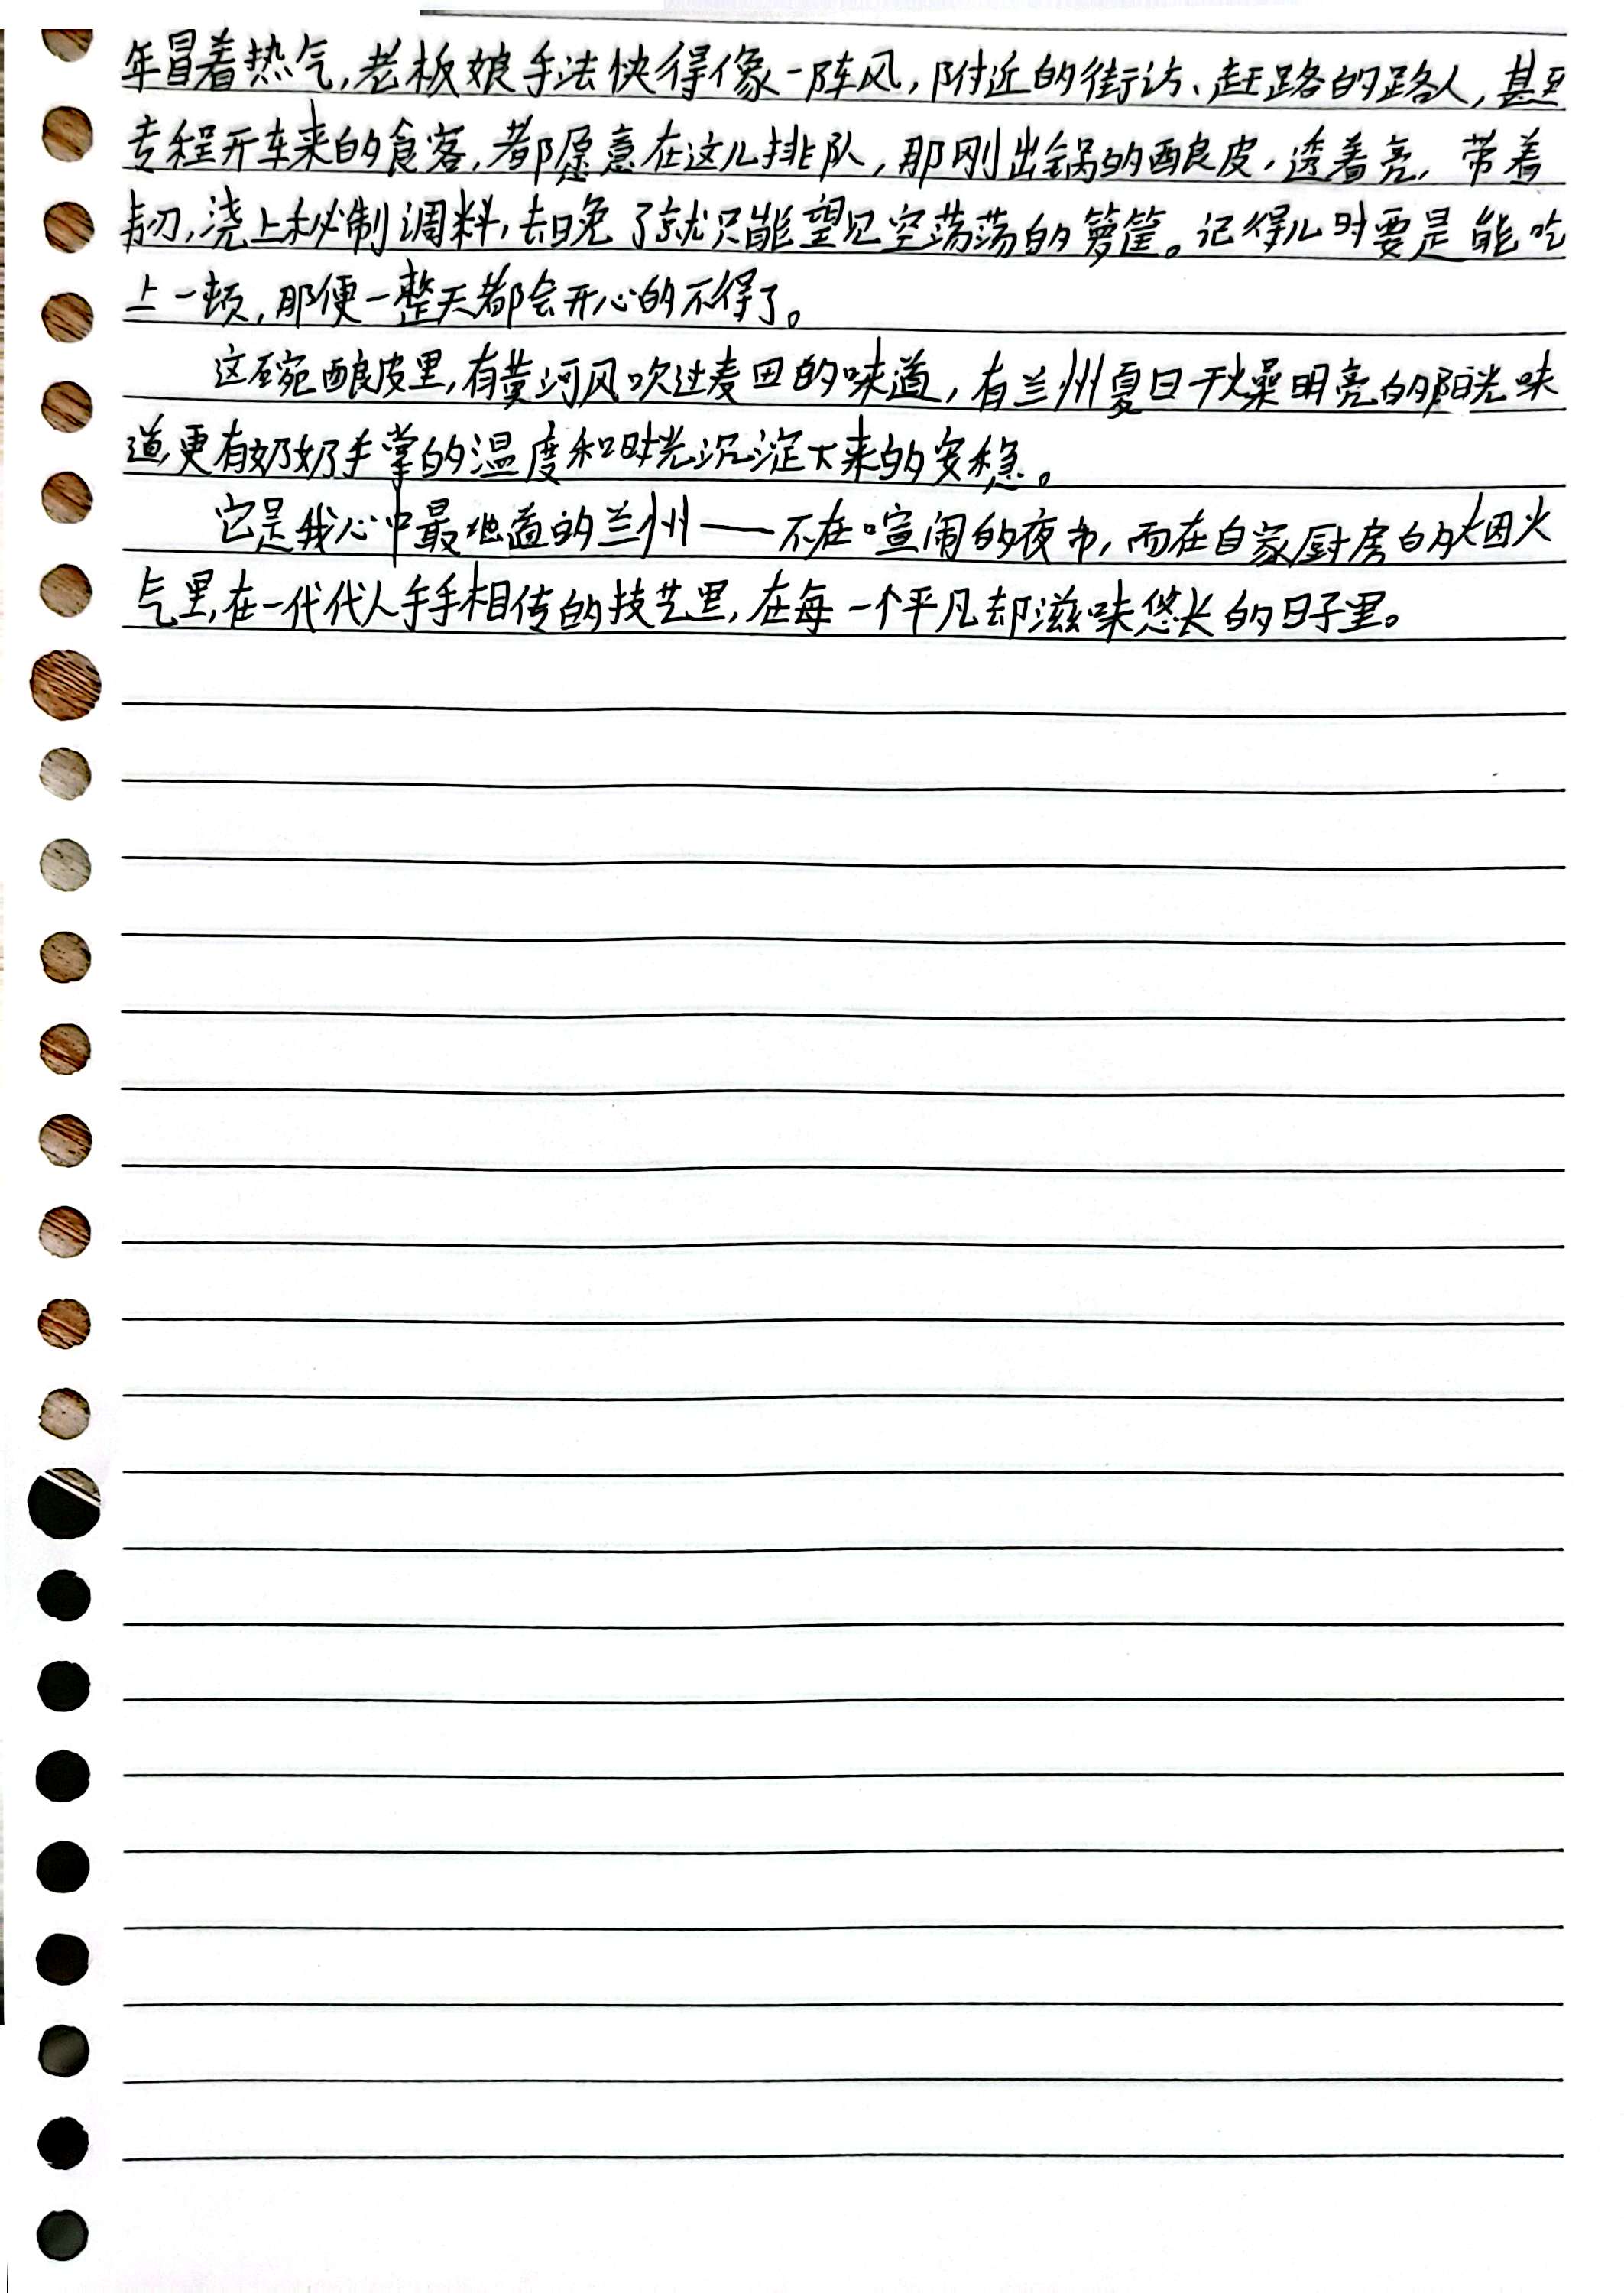 年冒着热气,老板娘手法快得像一阵风,附近的街访、赶路的路人,甚至
专程开车来的食客,都愿意在这儿排队,那刚出锅的酿皮,透着亮,带着
韧,浇上秘制调料,去晚了就只能望见空荡荡的箩筐。记得儿时要是能吃
上一顿,那便一整天都会开心的不得了。
这碗酿皮里,有黄河风吹过麦田的味道,有兰州夏日干燥明亮的阳光味
道,更有奶奶手掌的温度和时光沉淀下来的安稳。
它是我心中最地道的兰州——不在喧闹的夜市,而在自家厨房的烟火
气里,在一代代人手手相传的技艺里,在每一个平凡却滋味悠长的日子里。